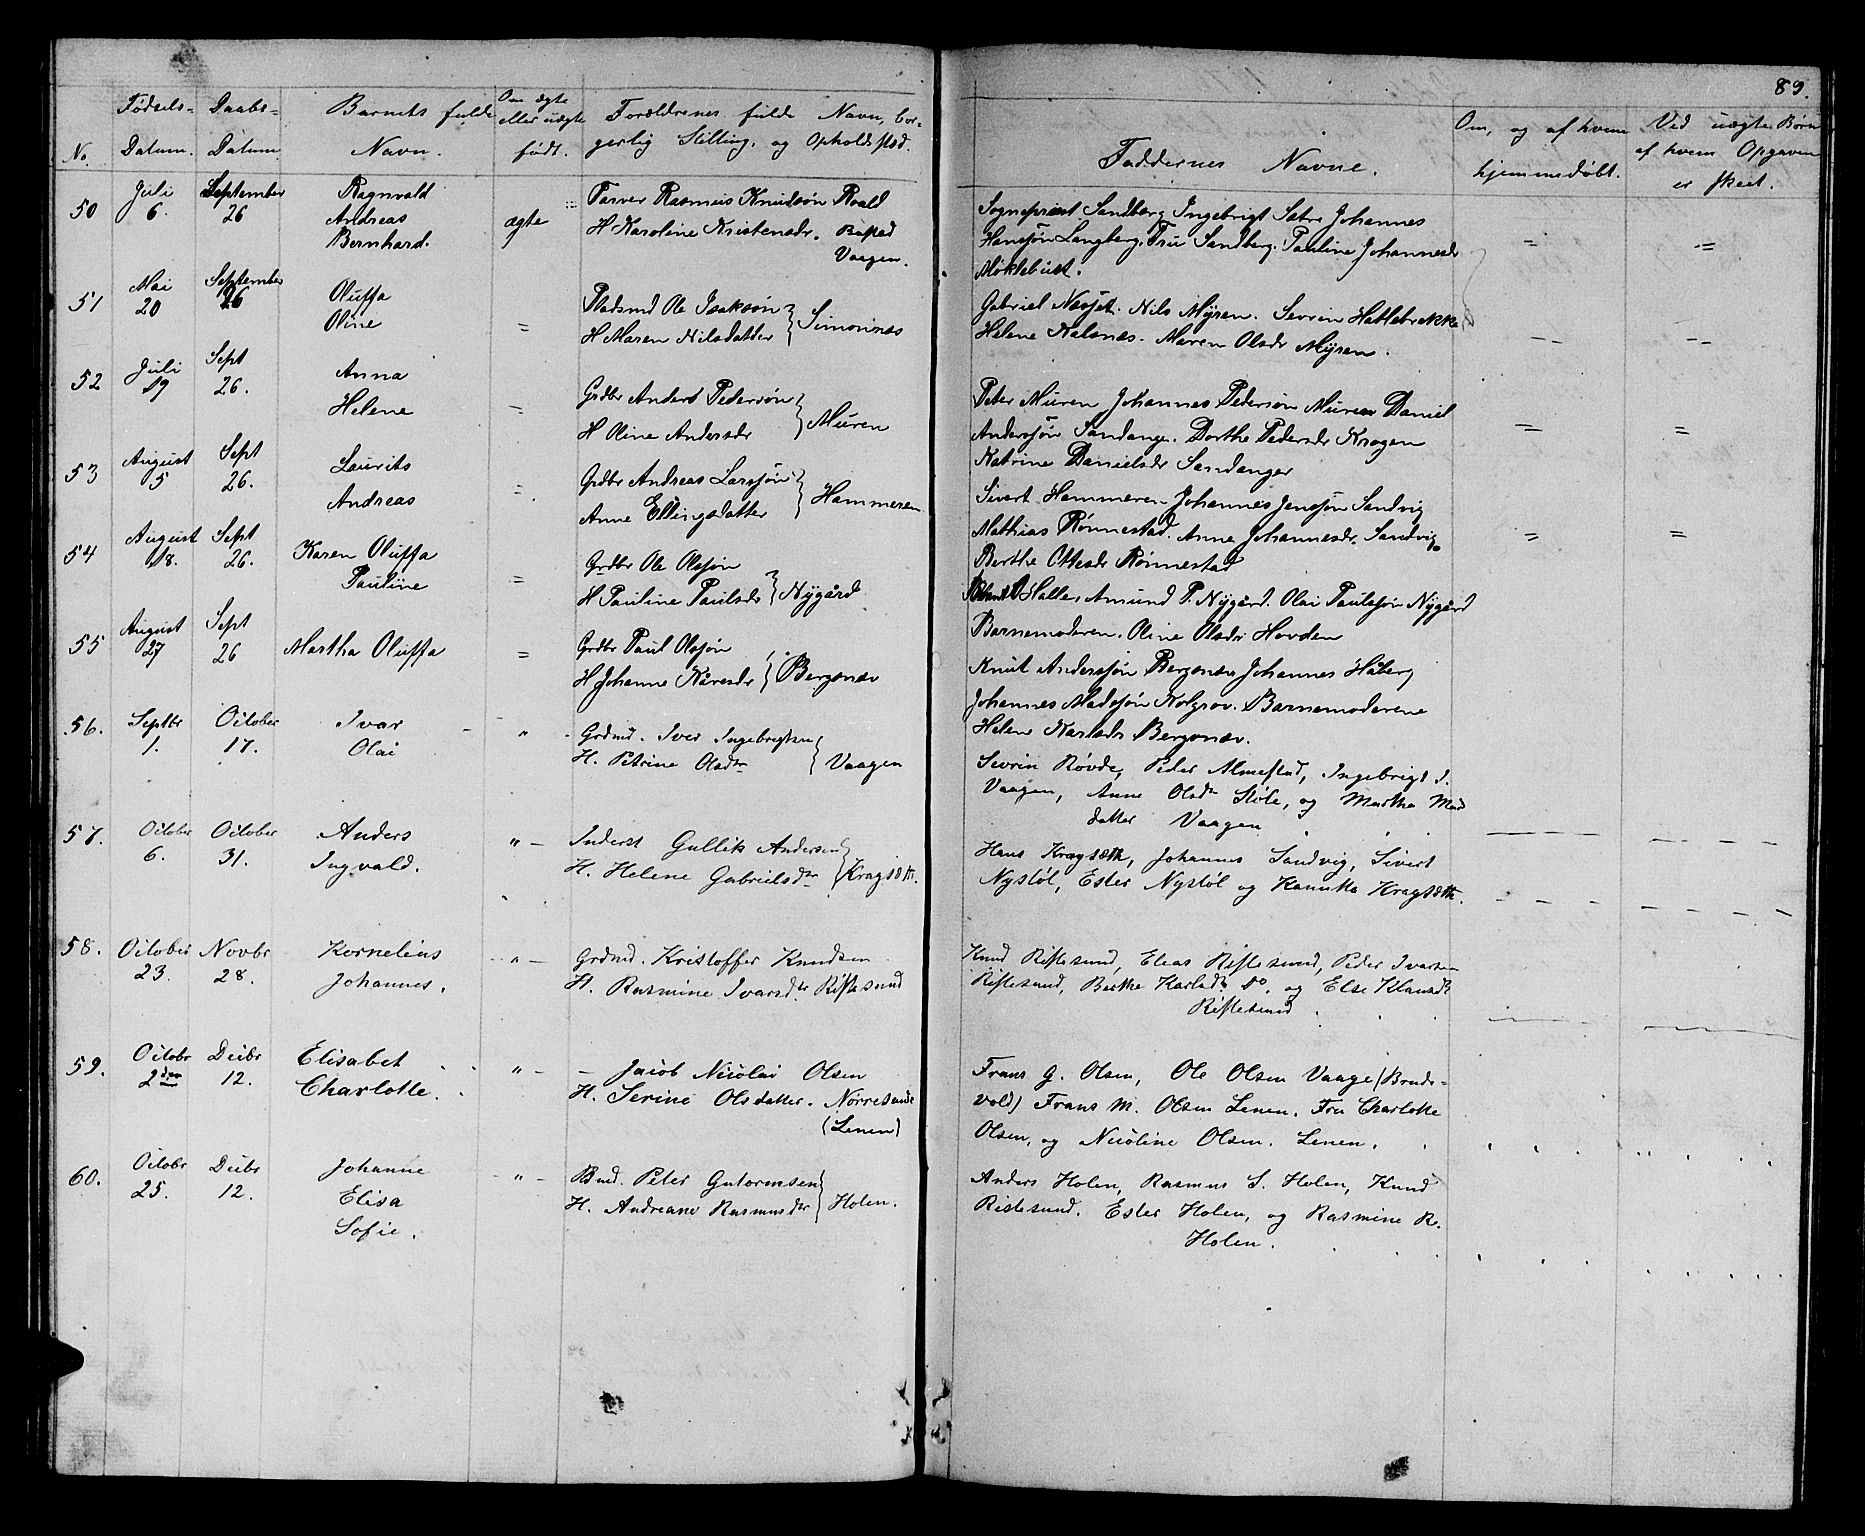 89.
No.
Fødsels-
Datum.
Daabs-
Datum
Barnets fulde
Navn.
Om ægte
eller uægte
født.
Forældrenes fulde Navn, bor-
gerlig Stilling, og Opholdssted.
Faddernes Navne.
Om, og af hvem
hjemmedøbt.
Ved uægte Børn
af hvem Opgaven
er skeet.
50
Juli
6.
September
26
Ragnvald
Andreas
Bernhard.
ægte
Farver Rasmus Knudsøn Roald
H Karoline Kristensdr. Bosted
Vaagen.
Sogneprest Sandberg Ingebrigt Sætre Johannes
Hanssøn Langberg. Fru Sandberg. Pauline Johannesdr
Møklebust.
51
Mai
20
September
26
Oluffa
Oline
=
Pladsmd Ole Isaksøn
H Maren Nilsdatter } Simonnæs
Gabriel Næsset. Nils Myren. Sevrin Hatlebrekke
Helene Halsnæs. Maren Olsdr Myren.
52
Juli
19
Sept
26.
Anna
Helene
=
Grdbr Anders Pedersøn
H Oline Andersdr } Muren
Peter Muren Johannes Pedersøn Muren Daniel
Anderssøn Sandange. Dorthe Pedersdr Krogen
Katrine Danielsdr Sandanger
53
August
5
Sept
26.
Laurits
Andreas
=
Grdbr Andreas Larssøn
Anne Ellingsdatter } Hammeren
Sivert Hammeren Johannes Jenssøn Sandvig
Mathias Rønnestad. Anne Johannesdr. Sandvig
Berthe Ottesdr Rønnestad
54
August
18.
Sept
26.
Karen Oluffa
Pauline
=
Grdbr Ole Olssøn
H Pauline Paulsdr } Nygård
Halle, Amund P. Nygård. Olai Paulssøn Nygård
Barnemoderen. Oline Olsdr Hovden
55
August
27
Sept
26
Martha Oluffa
=
Grdbr Paul Olssøn
H Johanne Kåresdr } Bergsnæv
Knut Anderssøn Bergsnæv Johannes Håberg
Johannes Madssøn Kolgrov. Barnemoderene
Helene Karlsdr Bergsnæv.
56.
Septbr
1.
October
17.
Ivar
Olai
"
Grdmd. Iver Ingebrigtsen
H. Petrine Olsdtr } Vaagen
Sevrin Røvde, Peder Almestad, Ingebrigt I.
Vaagen, Anne Olsdtr Støle, og Martha Mad
datter Vaagen
57.
October
6.
October
31.
Anders
Ingvald.
" -
Inderst Gullik Andersen
H. Helene Gabrielsdtr } Kragsæth.
Hans Kragsæth, Johannes Sandvig, Sivert
Nystøl, Ester Nystøl og Kanutta Kragsæth.
58.
October
23.
Novbr
28.
Kornelius
Johannes.
" -
Grdmd. Kristoffer Knudsen
H. Rasmine Ivarsdtr. Ristesund
Knud Ristesund, Elias Ristesund, Peder Ivarsen
Ristesund, Berthe Karlsdtr do. og Else Klausdtr
Ristesund.
59.
Octobr
2den
Decbr
12.
Elisabet
Charlotte.
" -
- Jacob Nicolai Olsen
H. Serine Olsdatter. Nørresunde
(Lenen)
Frans G. Olsen, Ole Olsen Vaage (Brude-
vold) Frans M. Olsen Lenen. Fru Charlotte
Olsen, og Nicoline Olsen. Lenen.
60.
Octobr
25.
Decbr
12.
Johanne
Elisa
Sofie.
" -
Bmd. Peter Gutormsen
H. Andreane Rasmusdtr } Holen.
Anders Holen, Rasmus S. Holen, Knud
Ristesund. Ester Holen, og Rasmine R.
Holen.